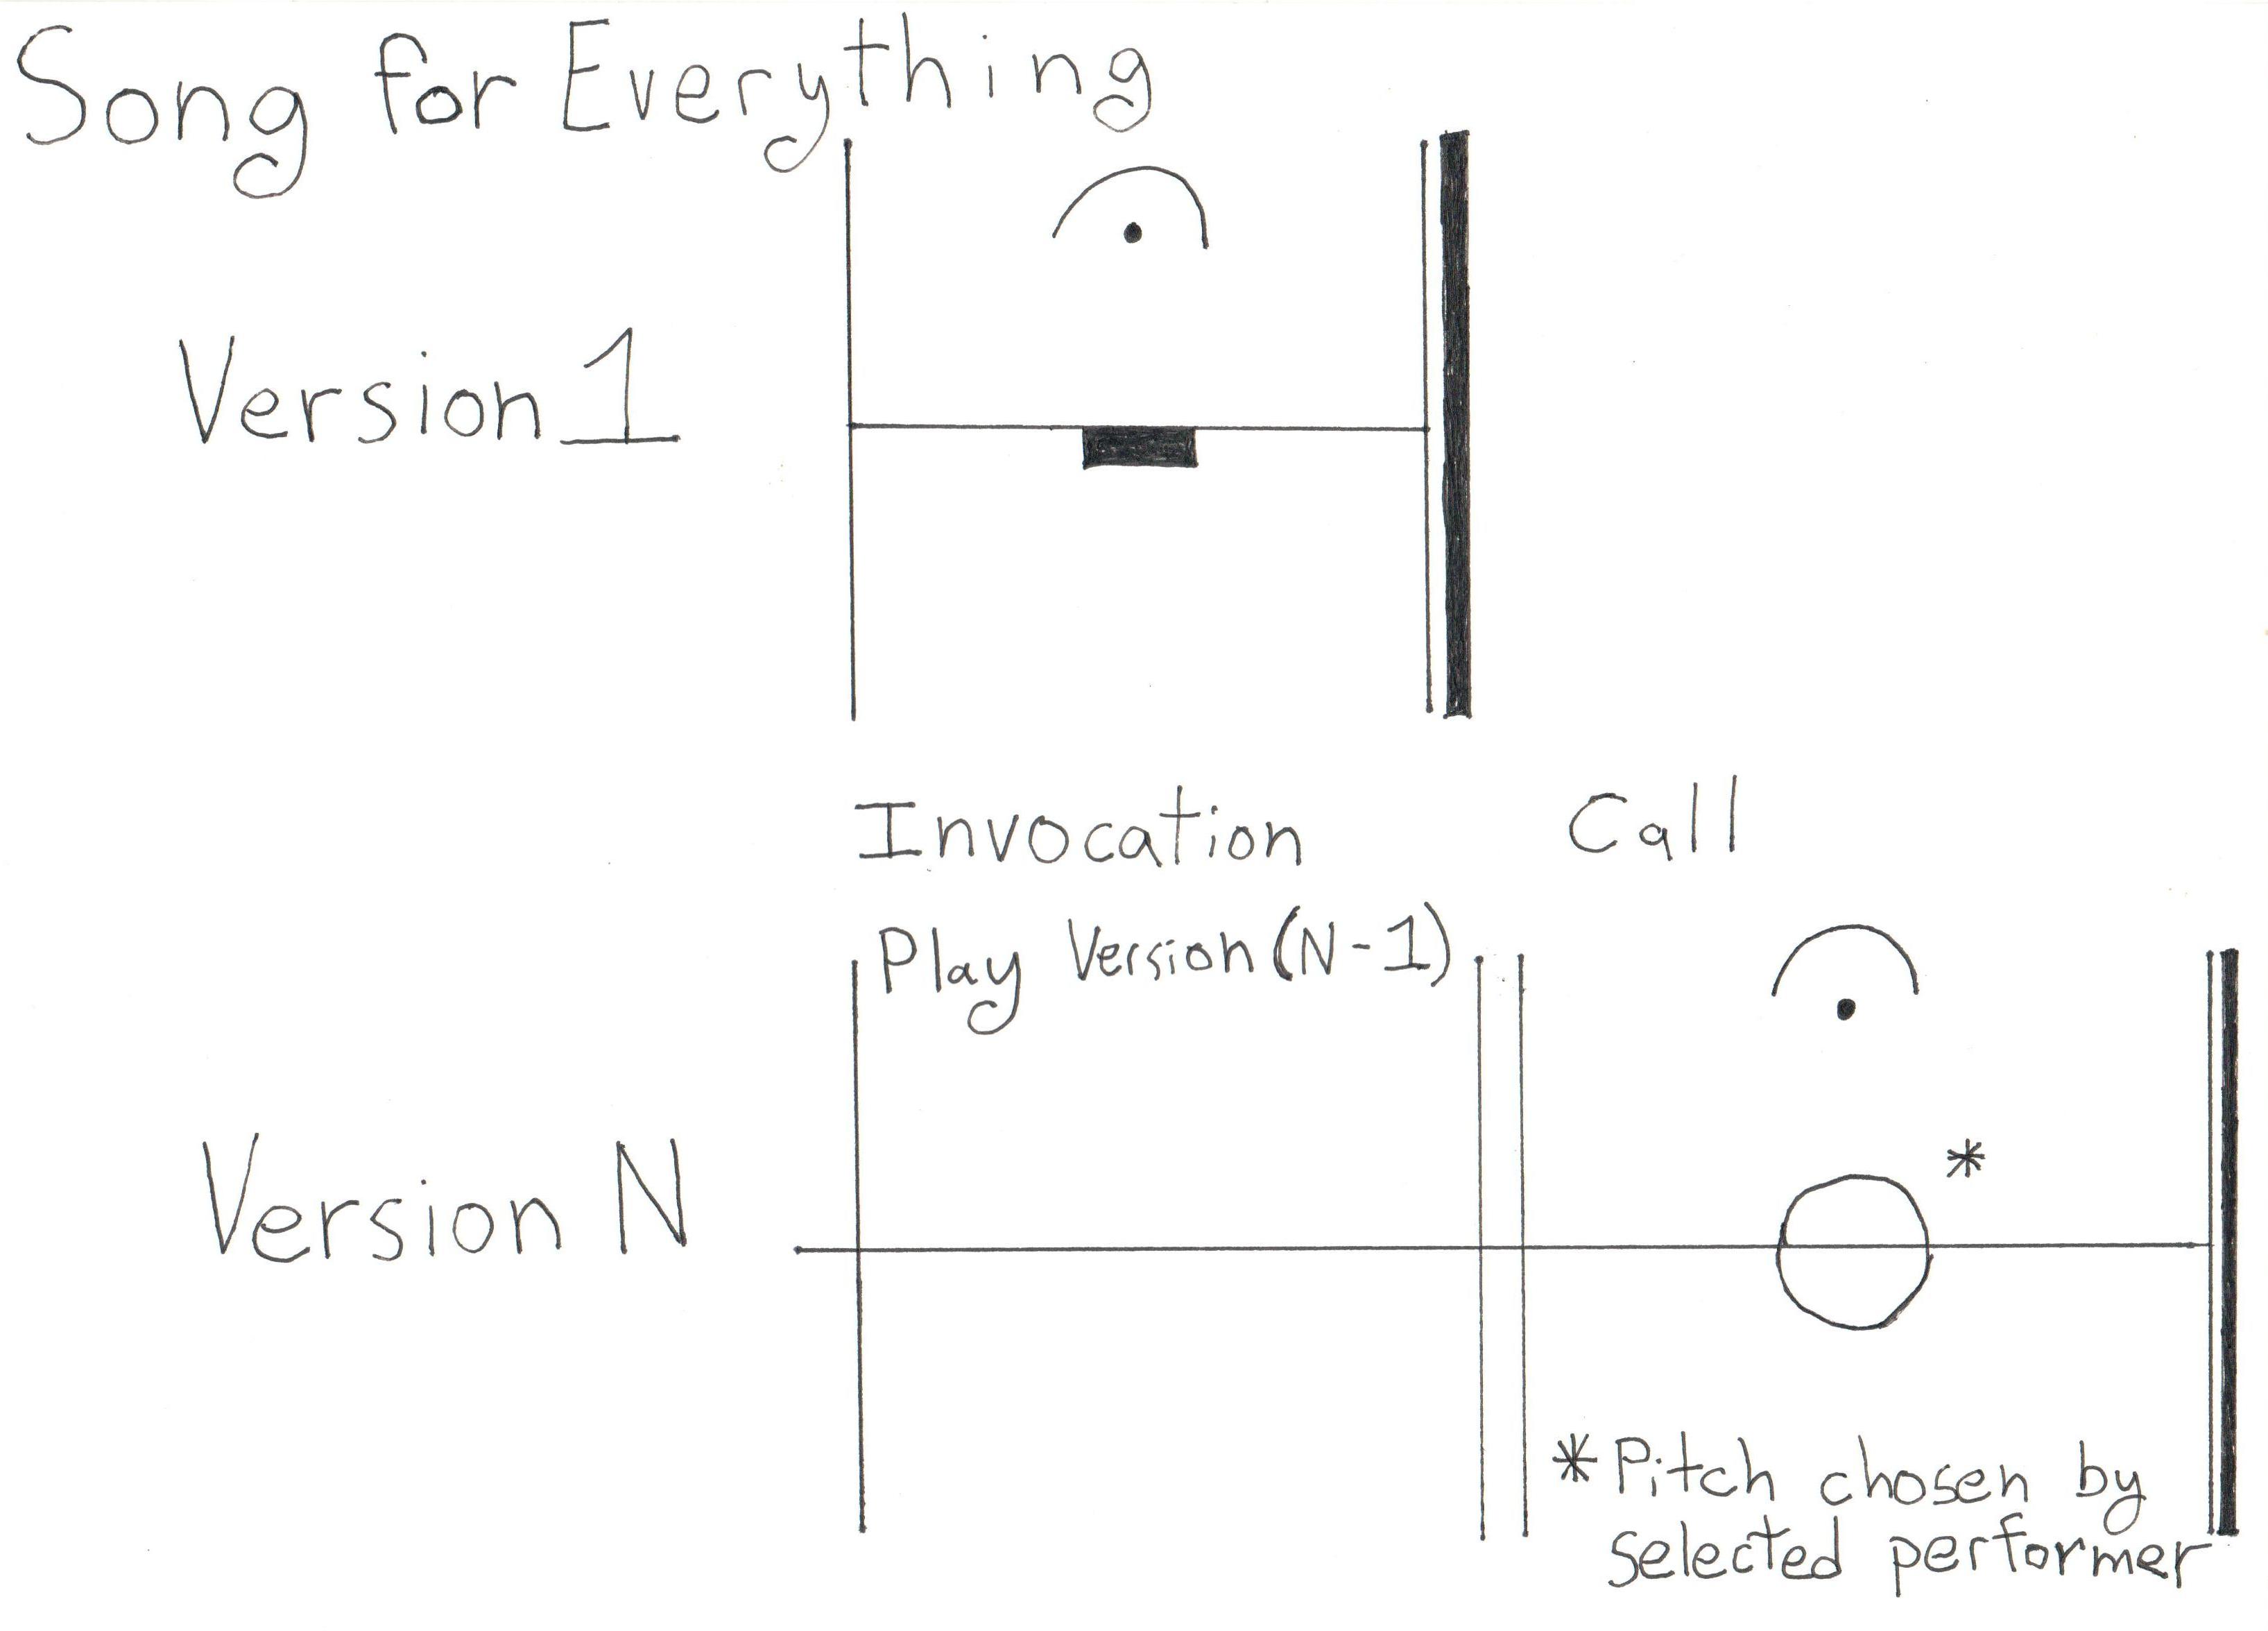 Song for Everything
Version 1
Invocation
Call
Play Version (N-1)
Version N
*
*Pitch chosen by
selected performer